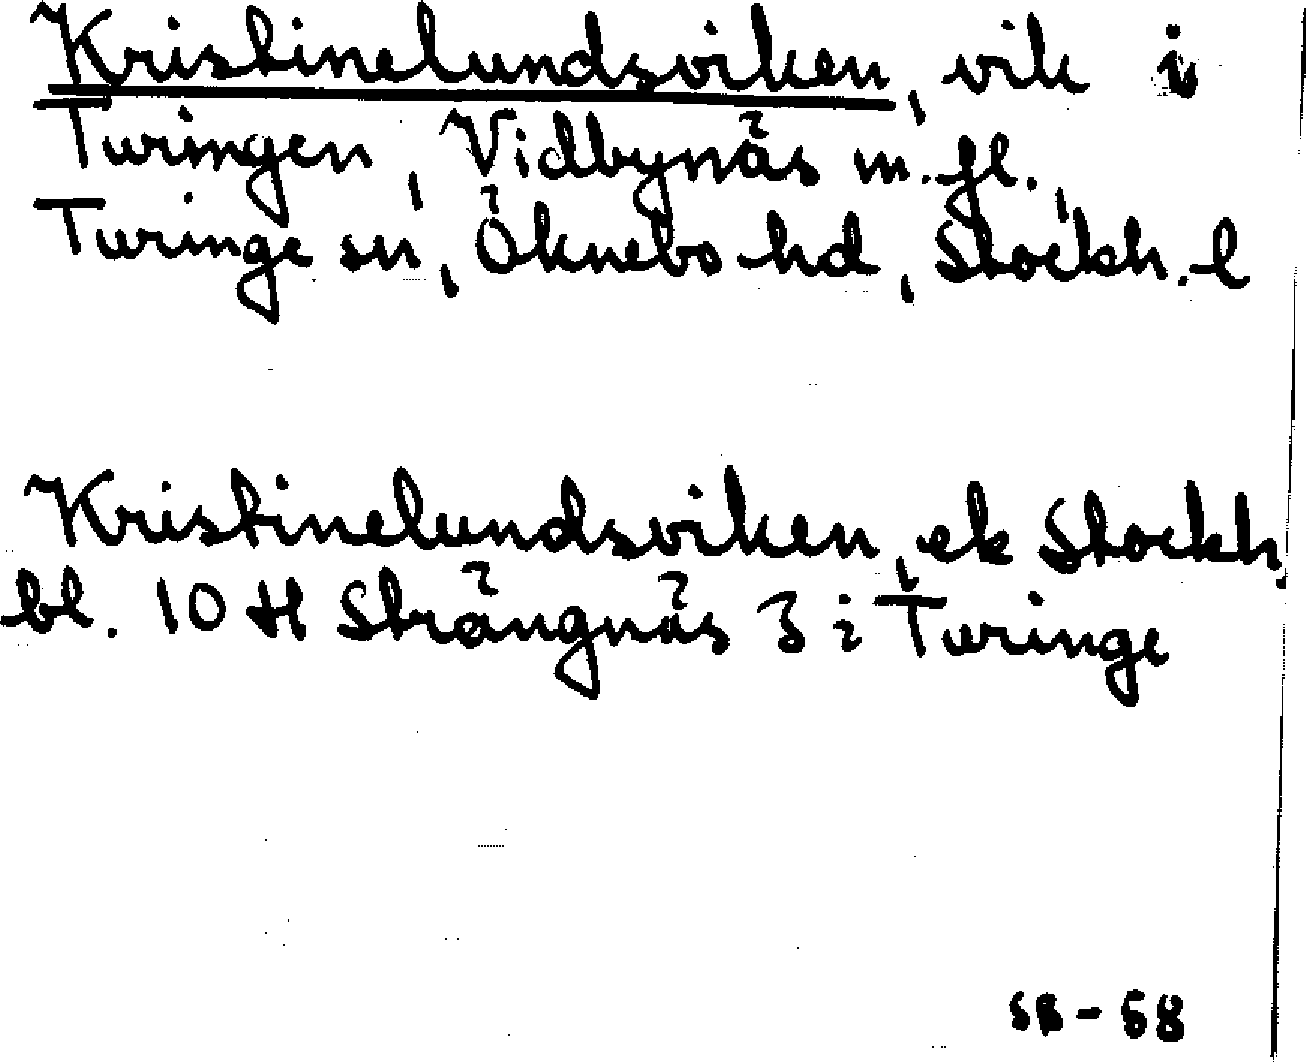 Kristinelundsviken, vik i
Turingen, Vidbynäs m.fl.,
Turinge sn, Öknebo hd, Stockh. l
Kristinelundsviken, ek Stockh.
bl. 10 H Strängnäs 3 i Turinge
SB - 58